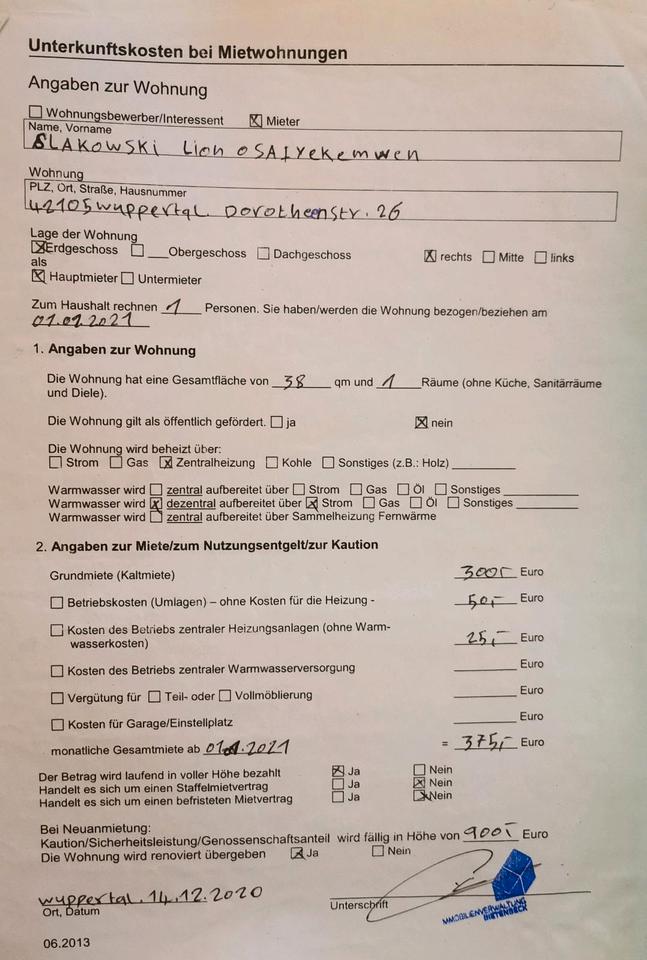 Unterkunftskosten bei Mietwohnungen
Angaben zur Wohnung
☐ Wohnungsbewerber/Interessent ☒ Mieter
Name, Vorname
SLAKOWSKI Lion OSAIYekemwen
Wohnung
PLZ, Ort, Straße, Hausnummer
42105 Wuppertal. Dorotheenstr. 26
Lage der Wohnung
☒ Erdgeschoss ☐ ___ Obergeschoss ☐ Dachgeschoss ☒ rechts ☐ Mitte ☐ links
als
☒ Hauptmieter ☐ Untermieter
Zum Haushalt rechnen 1 Personen. Sie haben/werden die Wohnung bezogen/beziehen am
01.01.2021
1. Angaben zur Wohnung
Die Wohnung hat eine Gesamtfläche von 38 qm und 1 Räume (ohne Küche, Sanitärräume
und Diele).
Die Wohnung gilt als öffentlich gefördert. ☐ ja ☒ nein
Die Wohnung wird beheizt über:
☐ Strom ☐ Gas ☒ Zentralheizung ☐ Kohle ☐ Sonstiges (z.B.: Holz)
Warmwasser wird ☐ zentral aufbereitet über ☐ Strom ☐ Gas ☐ Öl ☐ Sonstiges
Warmwasser wird ☒ dezentral aufbereitet über ☒ Strom ☐ Gas ☐ Öl ☐ Sonstiges
Warmwasser wird ☐ zentral aufbereitet über Sammelheizung Fernwärme
2. Angaben zur Miete/zum Nutzungsentgelt/zur Kaution
Grundmiete (Kaltmiete) 300,- Euro
☐ Betriebskosten (Umlagen) – ohne Kosten für die Heizung - 50,- Euro
☐ Kosten des Betriebs zentraler Heizungsanlagen (ohne Warm-
wasserkosten) 25,- Euro
☐ Kosten des Betriebs zentraler Warmwasserversorgung Euro
☐ Vergütung für ☐ Teil- oder ☐ Vollmöblierung Euro
☐ Kosten für Garage/Einstellplatz Euro
monatliche Gesamtmiete ab 01.01.2021 = 375,- Euro
Der Betrag wird laufend in voller Höhe bezahlt ☒ Ja ☐ Nein
Handelt es sich um einen Staffelmietvertrag ☐ Ja ☒ Nein
Handelt es sich um einen befristeten Mietvertrag ☐ Ja ☒ Nein
Bei Neuanmietung:
Kaution/Sicherheitsleistung/Genossenschaftsanteil wird fällig in Höhe von 900,- Euro
Die Wohnung wird renoviert übergeben ☒ Ja ☐ Nein
Wuppertal. 14.12.2020
Ort, Datum
Unterschrift
IMMOBILIENVERWALTUNG
BIETENBECK
06.2013